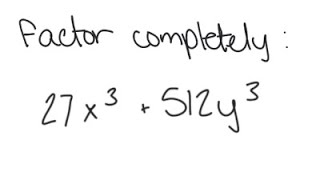 Factor completely:
27x³ + 512y³